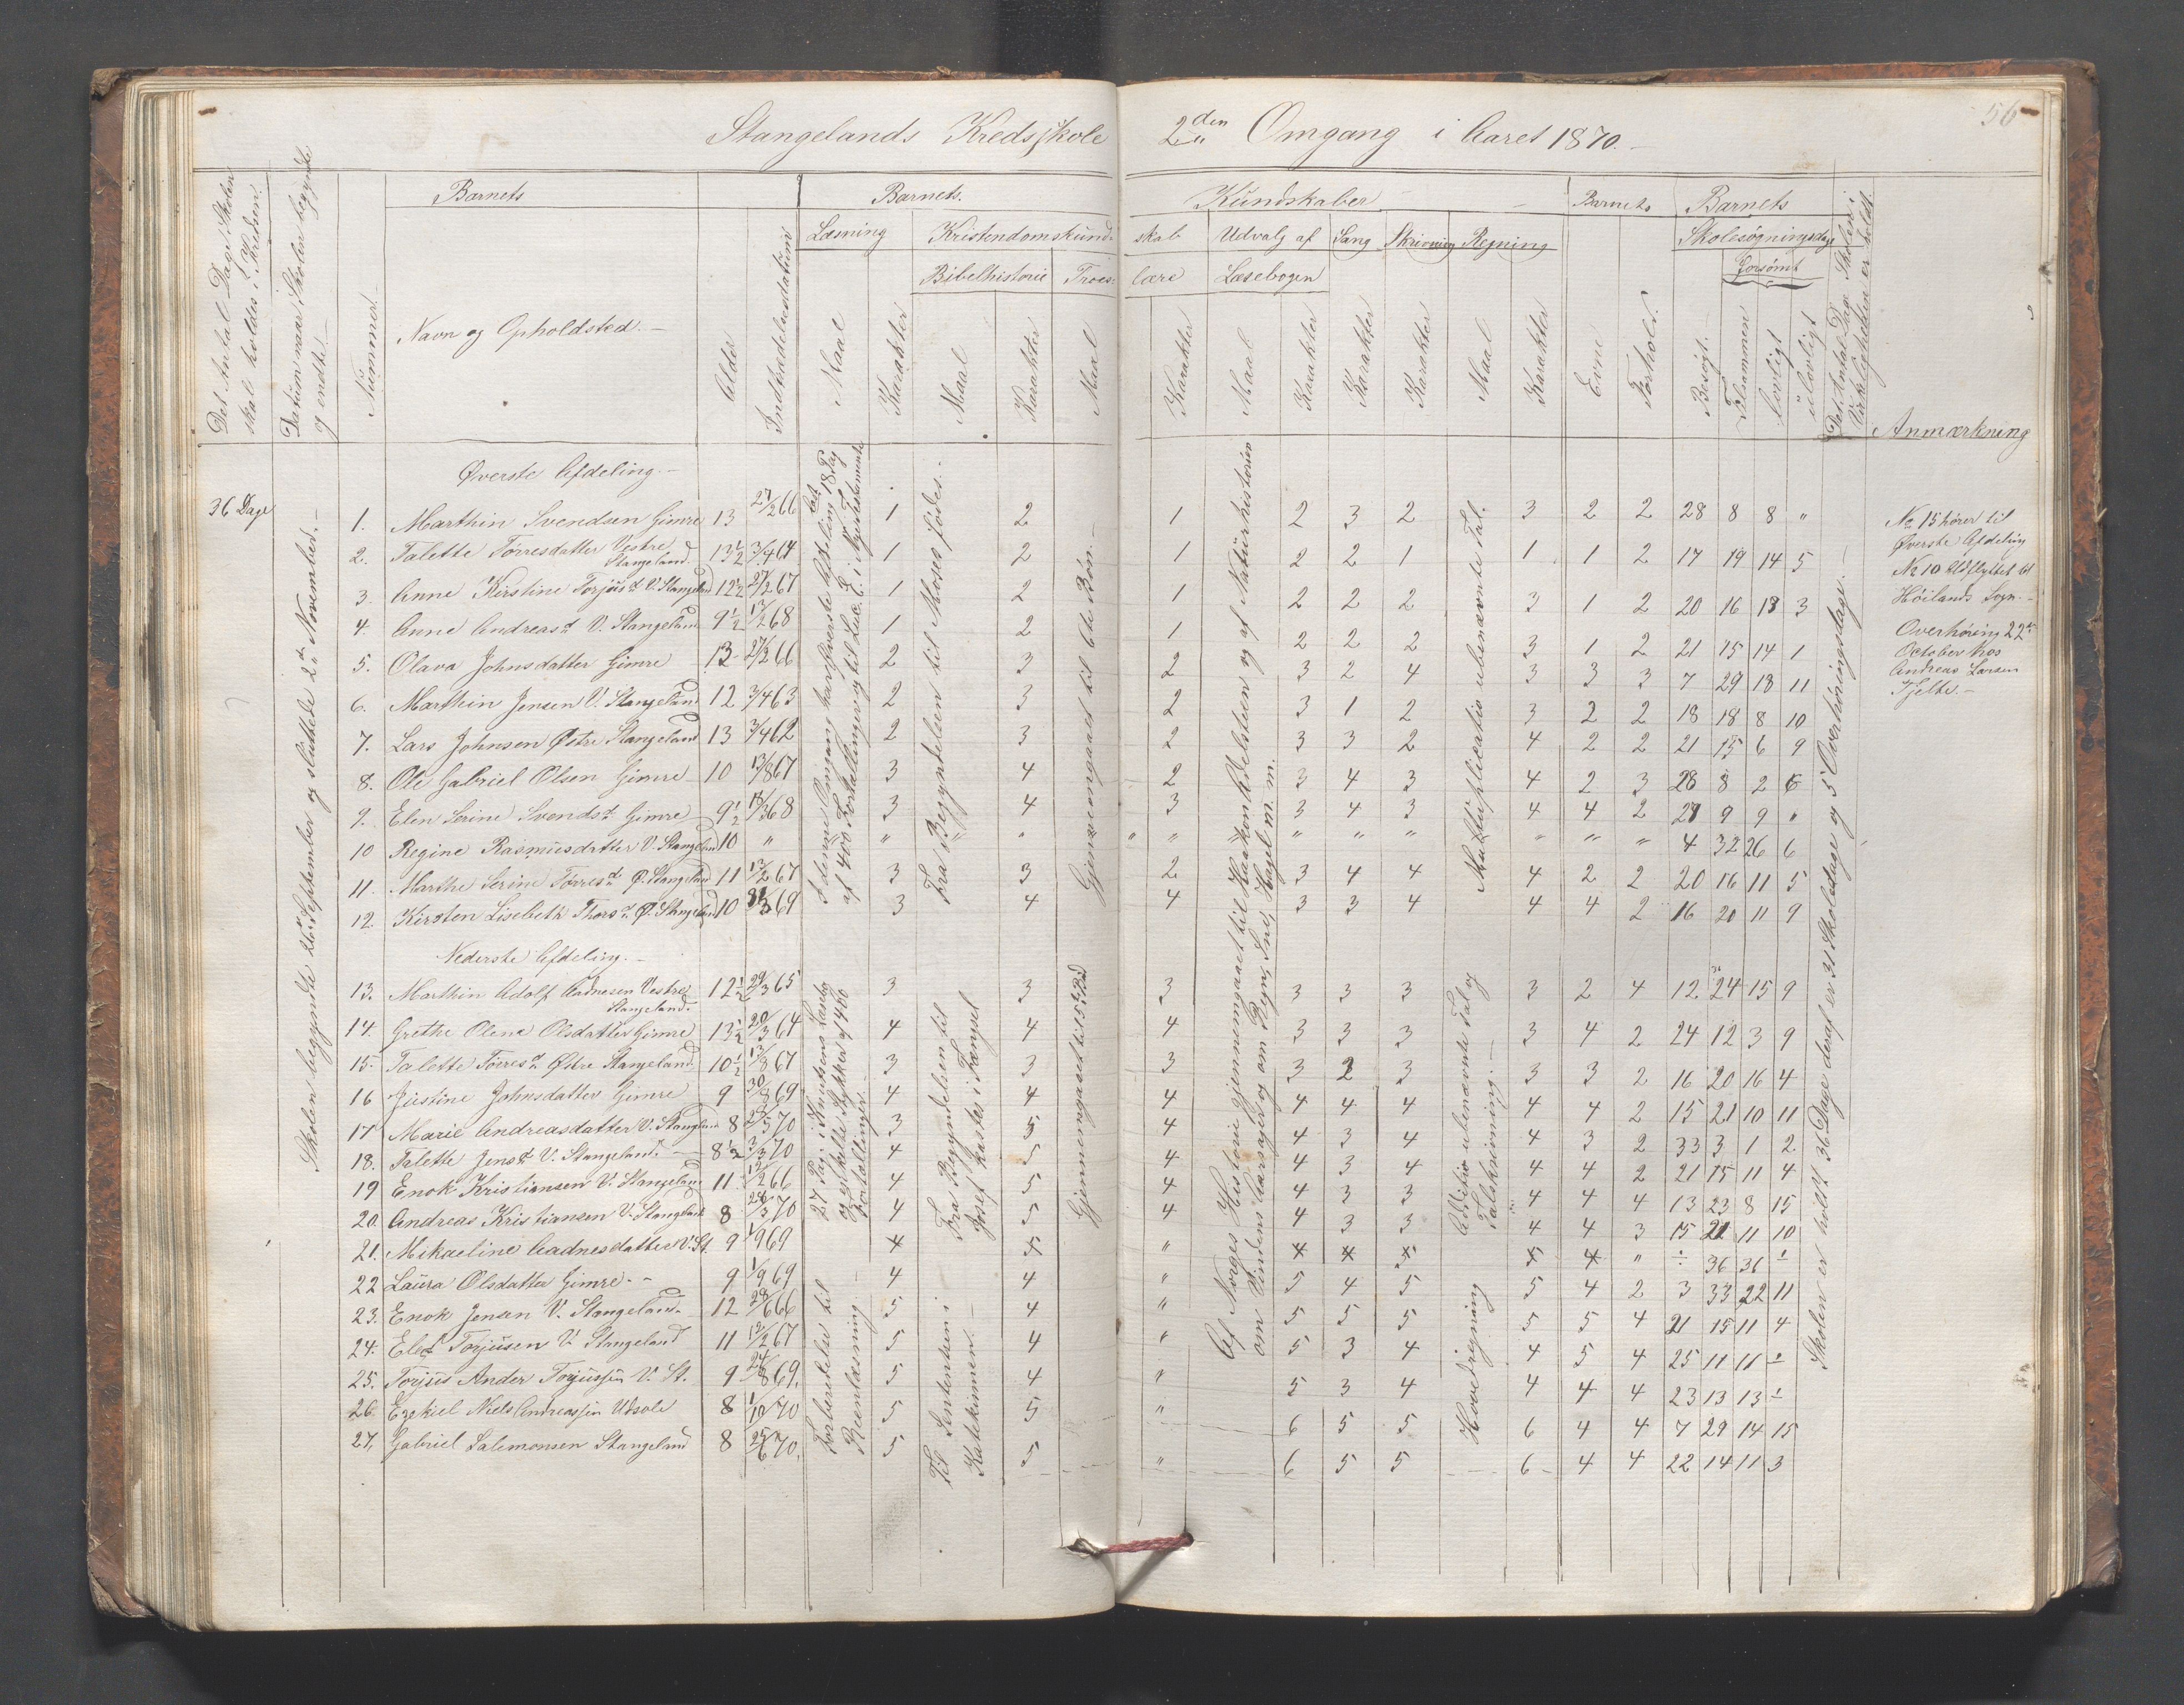 56
Stangelands Kredsskole 2den Omgang i Aaret 1870.
Det Antal Dage Skolen skal holdes i Kredsen.
Datum naar Skolen begyndte og endte.
Nummer.
Barnets
Navn og Opholdsted.
Alder
Indtrædelsesdatum
Barnets. Kundskaber
Læsning
Kristendomskundskab
Udvalg af Læsebogen
Sang
Skrivning
Regning
Bibelhistorie
Troeslære
Maal
Karakter
Maal
Karakter
Maal
Karakter
Maal
Karakter
Karakter
Karakter
Maal
Karakter
Barnets
Evne
Forhold.
Barnets
Skolesøgningsdage
Forsømt
Besøgt.
Tilsammen
lovligt
ulovligt
Det Antal Dage Skolen i Virkeligheden er holdt.
Anmærkning
Øverste Afdeling.
36 Dage
Skolen begyndte 26de September og sluttede 2den November.
1. Marthin Svendsen Gimre 13 27/2 66 1 2 1 2 3 2 3 2 2 28 8 8 "
2. Talette Tørresdatter Vestre Stangeland. 13½ 3/4 64 1 2 1 2 2 1 1 1 2 17 19 14 5
3. Anne Kirstine Torjusd. V. Stangeland 12½ 27/2 67 1 2 1 2 2 2 3 1 2 20 16 13 3
4. Anne Andreasd. V. Stangeland 9½ 13/2 68 1 2 1 2 2 2 3 1 2 21 15 14 1
5. Olava Johnsdatter Gimre 13 27/2 66 2 3 2 3 2 4 3 3 3 7 29 18 11
6. Marthin Jensen V. Stangeland 12 3/4 63 2 3 2 3 1 2 3 2 2 18 18 8 10
7. Lars Johnsen Østre Stangeland 13 3/4 62 2 3 2 3 3 2 4 2 2 21 15 6 9
8. Ole Gabriel Olsen Gimre 10 13/8 67 3 4 2 3 4 3 4 2 3 28 8 2 6
9. Elen Serine Svendsd. Gimre 9½ 18/3 68 3 4 3 3 4 3 4 4 2 27 9 9 "
10 Regine Rasmusdatter V. Stangeland 10 " " " " " " " " " " 4 32 26 6
11. Marthe Serine Tørresd. Ø. Stangeland 11 13/2 67 3 3 2 3 4 4 4 2 2 20 16 11 5
12. Kirsten Lisebeth Thorsd. Ø. Stangeland 10 69 3 4 4 3 3 4 4 4 2 16 20 11 9
Nederste Afdeling.
13. Marthin Adolf Aadnesen Vestre Stangeland. 12½ 29/3 65 3 3 3 3 3 3 3 2 4 12 24 15 9
14. Grethe Olene Olsdatter Gimre 13½ 20/3 64 4 4 4 3 3 3 3 4 2 24 12 3 9
15. Talette Tørresd. Østre Stangeland 10½ 13/8 67 3 3 3 3 2 3 3 3 2 16 20 16 4
16 Justine Johnsdatter Gimre 9 30/8 69 4 4 4 4 4 4 4 4 2 15 21 10 11
17 Marie Andreasdatter V. Stangeland 8 28/3 70 3 5 4 4 3 4 4 3 2 33 3 1 2
18. Talette Jensd. V. Stangeland. 8½ 3/3 70 4 5 4 4 3 4 4 4 2 21 15 11 4
19 Enok Kristiansen V. Stangeland 11 13/2 66 4 5 4 4 3 3 4 4 4 13 23 8 15
20. Andreas Kristiansen V. Stangeland 8 28/3 70 4 5 4 4 3 3 4 4 3 15 21 11 10
21. Mikaeline Aadnesdatter V. St. 9 1/9 69 " " ÷ 36 36 ÷
22 Laura Olsdatter Gimre. 9 1/9 69 4 4 " 5 4 5 5 4 2 3 33 22 11
23. Enok Jensen V. Stangeland. 12 28/6 66 5 4 " 5 5 5 5 5 4 21 15 11 4
24. Elef Torjusen V. Stangeland 11 13/2 67 5 4 " 5 3 4 4 5 4 25 11 11 ÷
25. Torjus Ander Torjussen V. St. 9 24/8 69. 5 4 " 5 3 4 4 4 4 23 13 13 ÷
26. Ezekiel Niels Andreassen Udsole 8 1/10 70 5 5 " 6 5 5 6 4 4 7 29 14 15
27. Gabriel Salemonsen Stangeland 8 25/6 70. 5 5 " 6 5 5 6 4 4 22 14 11 3
I denne Omgang har Øverste Afdeling læst 18 Pag. af 400 Fortællinger og til Luc. E. i Nyetestamente
Fra Begyndelsen til Moses fødes.
Gjennemgaaet til 6te Bøn.
Multiplicatio ubenævnte Tal.
27 Pag. i Knutsens Læsebog og enkelte Stykker af 400 Fortællinger.
Fra Begyndelsen til Josef kastes i Fængsel
Gjennemgaaet til 5te Bud
Af Norges Historie gjennemgaaet til Haakon Adelsteen og af Naturhistorien om Vindens Aarsager og om Regn, Sne, Hagel m. m.
Additio ubenævnte Tal og Talskrivning.
Forberedelse til Reenlæsning
Til Sententsen i Katekismen.
Hovedregning
Skolen er holdt 36 Dage deraf er 31 Skoledage og 5 Overhøringsdage.
No 15 hører til
Øverste Afdeling
No 10 Udflyttet til
Høilands Sogn.
Overhøring 22de
October hos
Andreas Larsen
Tjelte.